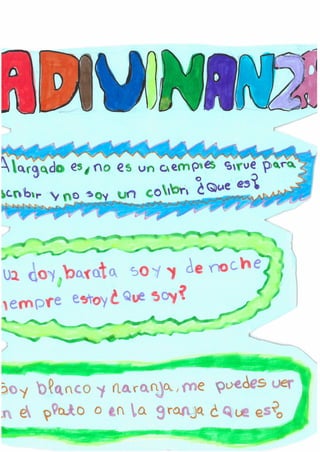 ADIVINANZA
Alargado es, no es un ciempies sirve para
scribir y no soy un colibri ¿Que es?
uz doy, barata soy y de noche
iempre estoy ¿Que soy?
Soy blanco y naranja, me puedes ver
en el plato o en la granja ¿Que es?